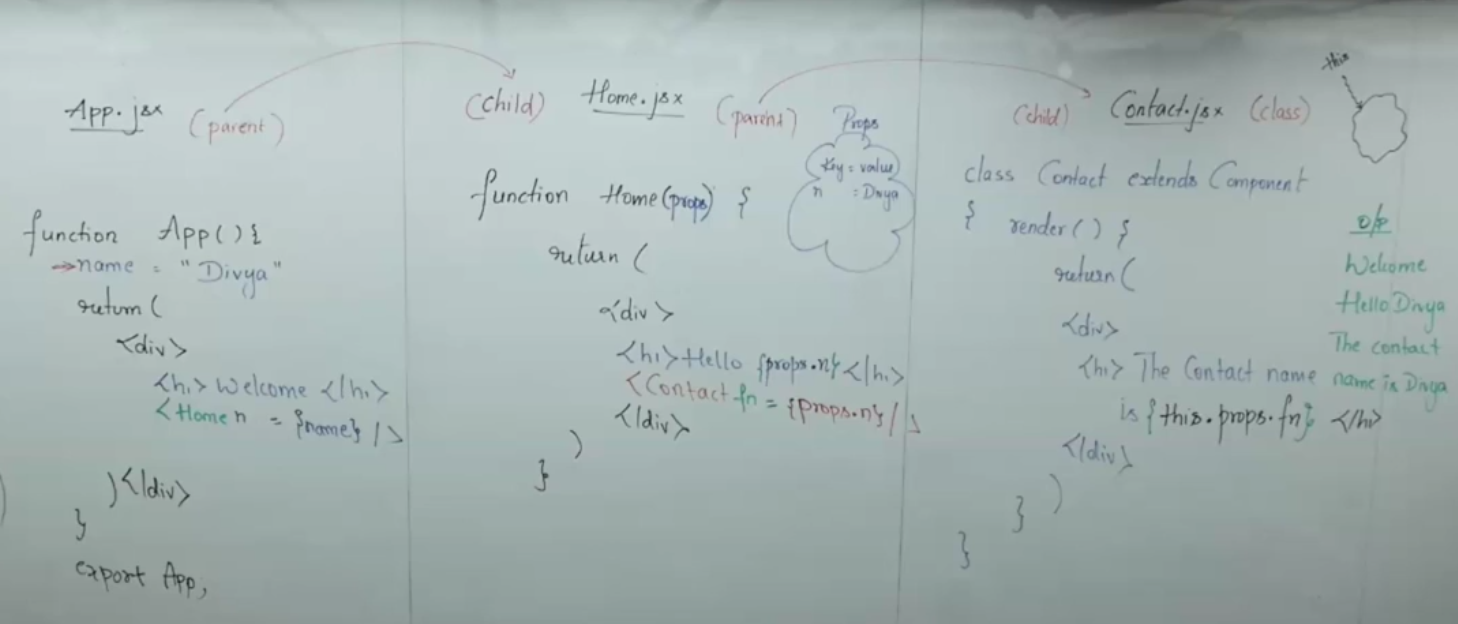 App.jsx (parent)
function App(){
→name = "Divya"
return (
<div>
<h1> Welcome </h1>
<Home n = {name} />
)</div>
}
export App,
(child) Home.jsx (parent)
Props
Key = value
n = Divya
function Home(props) {
return (
<div>
<h1>Hello {props.n}</h1>
<Contact fn = {props.n} />
</div>
)
}
(child) Contact.jsx (class)
this
class Contact extends Component
{ render() {
return (
<div>
<h1> The Contact name
is {this.props.fn} </h1>
</div>
)
}
}
o/p
Welcome
Hello Divya
The contact
name is Divya